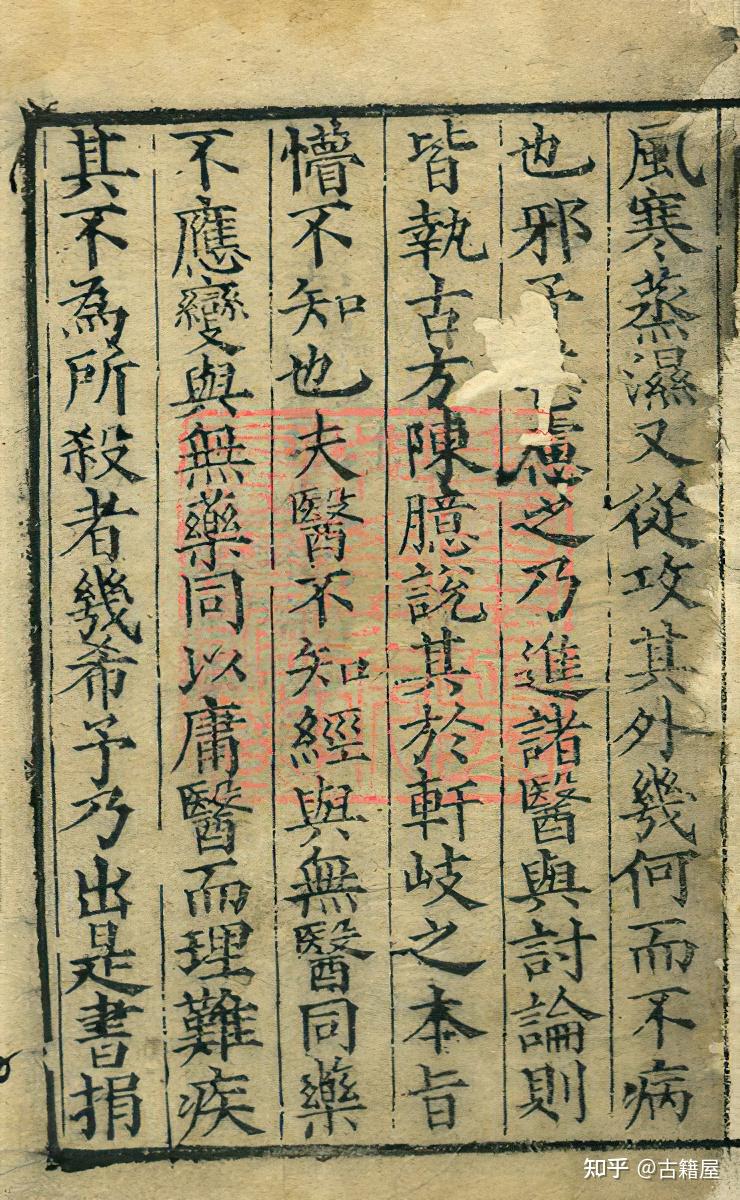 風寒蒸濕又從攻其外幾何而不病
也邪予慮之乃進諸醫與討論則
皆執古方陳臆說其於軒岐之本旨
懵不知也夫醫不知經與無醫同藥
不應變與無藥同以庸醫而理難疾
其不為所殺者幾希予乃出是書捐
知乎 @古籍屋